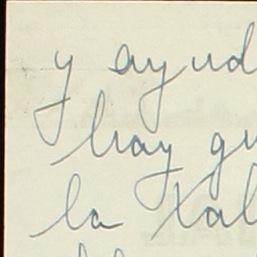 y ayud
hay qu
la tal